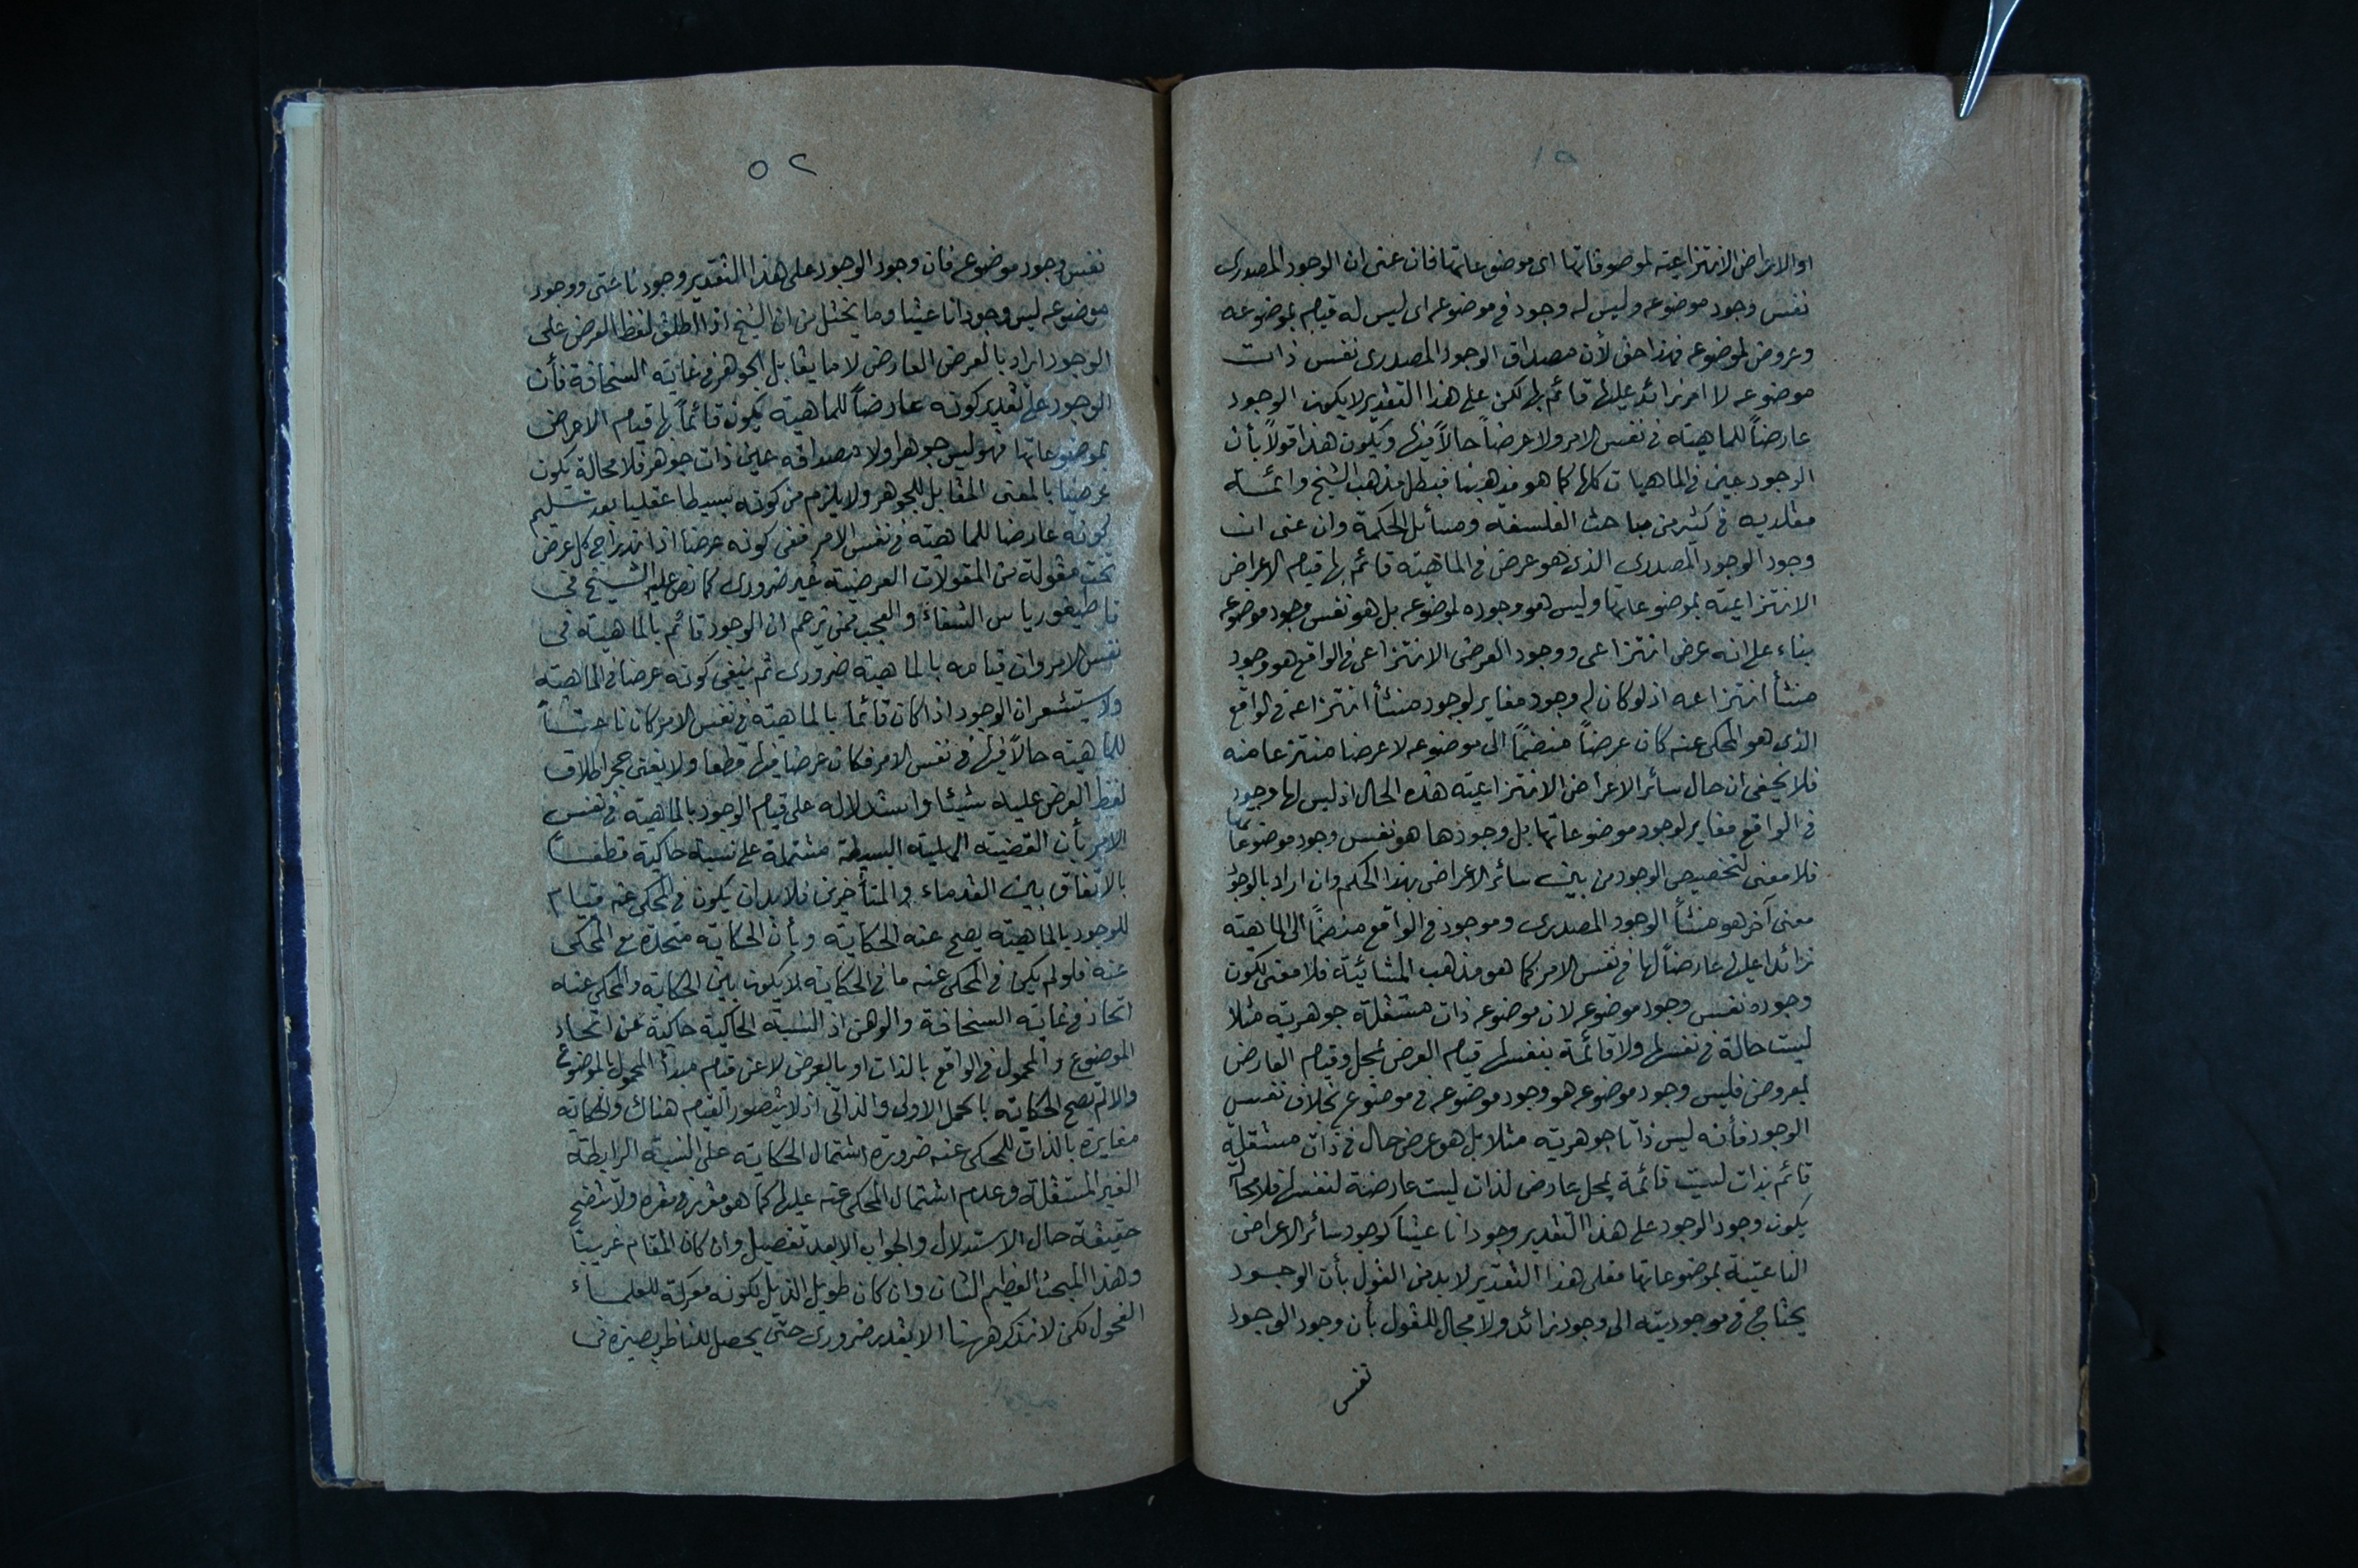 ٥١
او الاعراض الانتزاعية لموصوفاتها اى موضوعاتها فان عنى ان الوجود المصدرى
نفس وجود موضوعه وليس له وجود فى موضوعه اى ليس له قيام بموضوعه
وعروض لموضوعه فهذا حق لأن مصداق الوجود المصدرى نفس ذات
موضوعه لا امر زائد عليها قائم بها لكن على هذا التقدير لا يكون الوجود
عارضاً للماهية فى نفس الامر ولا عرضاً حالاً فيها ويكون هذا قولاً بأن
الوجود عين فى الماهيات كلها كما هو مذهبنا فبطل مذهب الشيخ وائمة
مقلديه فى كثير من مباحث الفلسفة ومسائل الحكمة وان عنى ان
وجود الوجود المصدرى الذى هو عرض فى الماهية قائم بها قيام الاعراض
الانتزاعية بموضوعاتها وليس هو وجوده لموضوعه بل هو نفس وجود موضوعه
بناء على انه عرض انتزاعى ووجود العرض الانتزاعى فى الواقع هو وجود
منشأ انتزاعه اذ لو كان له وجود مغاير لوجود منشأ انتزاعه فى الواقع
الذى هو المحكى عنه كان عرضاً منضمّاً الى موضوعه لا عرضا منتزعا منه
فلا يخفى ان حال سائر الاعراض الانتزاعية هذه الحال اذ ليس لها وجود
فى الواقع مغاير لوجود موضوعاتها بل وجودها هو نفس وجود موضوعاتها
فلا معنى لتخصيص الوجود من بين سائر الاعراض بهذا الحكم وان اراد بالوجود
معنى آخر هو منشأ الوجود المصدرى وموجود فى الواقع منضمّاً الى الماهية
زائدا عليها عارضاً لها فى نفس الامر كما هو مذهب المشائية فلا معنى لكون
وجوده نفس وجود موضوعه لان موضوعه ذات مستقلة جوهرية مثلا
ليست حالة فى نفسها ولا قائمة بنفسها قيام العرض بمحل وقيام العارض
بمعروض فليس وجود موضوعه هو وجود موضوعه فى موضوع بخلاف نفس
الوجود فأنه ليس ذاتا جوهرية مثلا بل هو عرض حال فى ذات مستقلة
قائم بذات ليست قائمة بمحل عارض لذات ليست عارضة لنفسها فلا محالة
يكون وجود الوجود على هذا التقدير وجودا ناعتيا كوجود سائر الاعراض
الناعتية بموضوعاتها فعلى هذا التقدير لا بد من القول بأن الوجود
يحتاج فى موجوديته الى وجود زائد ولا مجال للقول بأن وجود الوجود
نفس
٥٢
نفس وجود موضوعه فان وجود الوجود على هذا التقدير وجود ناعتى ووجود
موضوعه ليس وجودا ناعتيا وما يختل من ان الشيخ اذا اطلق لفظ العرض على
الوجود اراد بالعرض العارض لا ما يقابل الجوهر فى غاية السخافة فأن
الوجود على تقدير كونه عارضاً للماهية يكون قائماً بها قيام الاعراض
بموضوعاتها فهو ليس جوهرا ولا مصداقه عين ذات جوهر فلا محالة يكون
عرضيا بالمعنى المقابل للجوهر ولا يلزم من كونه بسيطا عقليا بعد تسليم
كونه عارضا للماهية فى نفس الامر نفى كونه عرضا اذ اندراج كل عرض
تحت مقولة من المقولات العرضية غير ضرورى كما نص عليه الشيخ فى
قاطيغورياس الشفاء والعجب ممن زعم ان الوجود قائم بالماهية فى
نفس الامر وان قيامه بالماهية ضرورى ثم ينفى كونه عرضا فى الماهية
ولا يستشعر ان الوجود اذا كان قائما بالماهية فى نفس الامر كان ناعتاً
للماهية حالاً فيها فى نفس الامر فكان عرضا فيها قطعا ولا يغنى حجر اطلاق
لفظ العرض عليه شيئا واستدلاله على قيام الوجود بالماهية فى نفس
الامر بأن القضية الهلية البسيطة مشتملة على نسبة حاكية قطعاً
بالاتفاق بين القدماء والمتأخرين فلا بد ان يكون فى المحكى عنه قيام
للوجود بالماهية يصح عنه الحكاية وبأن الحكاية متحدة مع المحكى
عنه فلو لم يكن فى المحكى عنه ما فى الحكاية لا يكون بين الحكاية والمحكى عنه
اتحاد فى غاية السخافة والوهن اذ النسبة الحاكية حاكية عن اتحاد
الموضوع والمحمول فى الواقع بالذات او بالعرض لا عن قيام مبدأ المحمول بالموضوع
والا لم يصح الحكاية بالحمل الاولى والذاتى اذ لا يتصور القيام هناك والحكاية
مغايرة بالذات للمحكى عنه ضرورة اشتمال الحكاية على النسبة الرابطة
الغير المستقلة وعدم اشتمال المحكى عنه عليها كما هو مقرر فى مقره ولا يتضح
حقيقة حال الاستدلال والجواب الا بعد تفصيل وان كان المقام غريبا
وهذا المبحث العظيم الشان وان كان طويل الذيل لكونه معركة للعلماء
الفحول لكن لا نذكر ههنا الا بقدر ضرورى حتى يحصل للناظر بصيرة فى